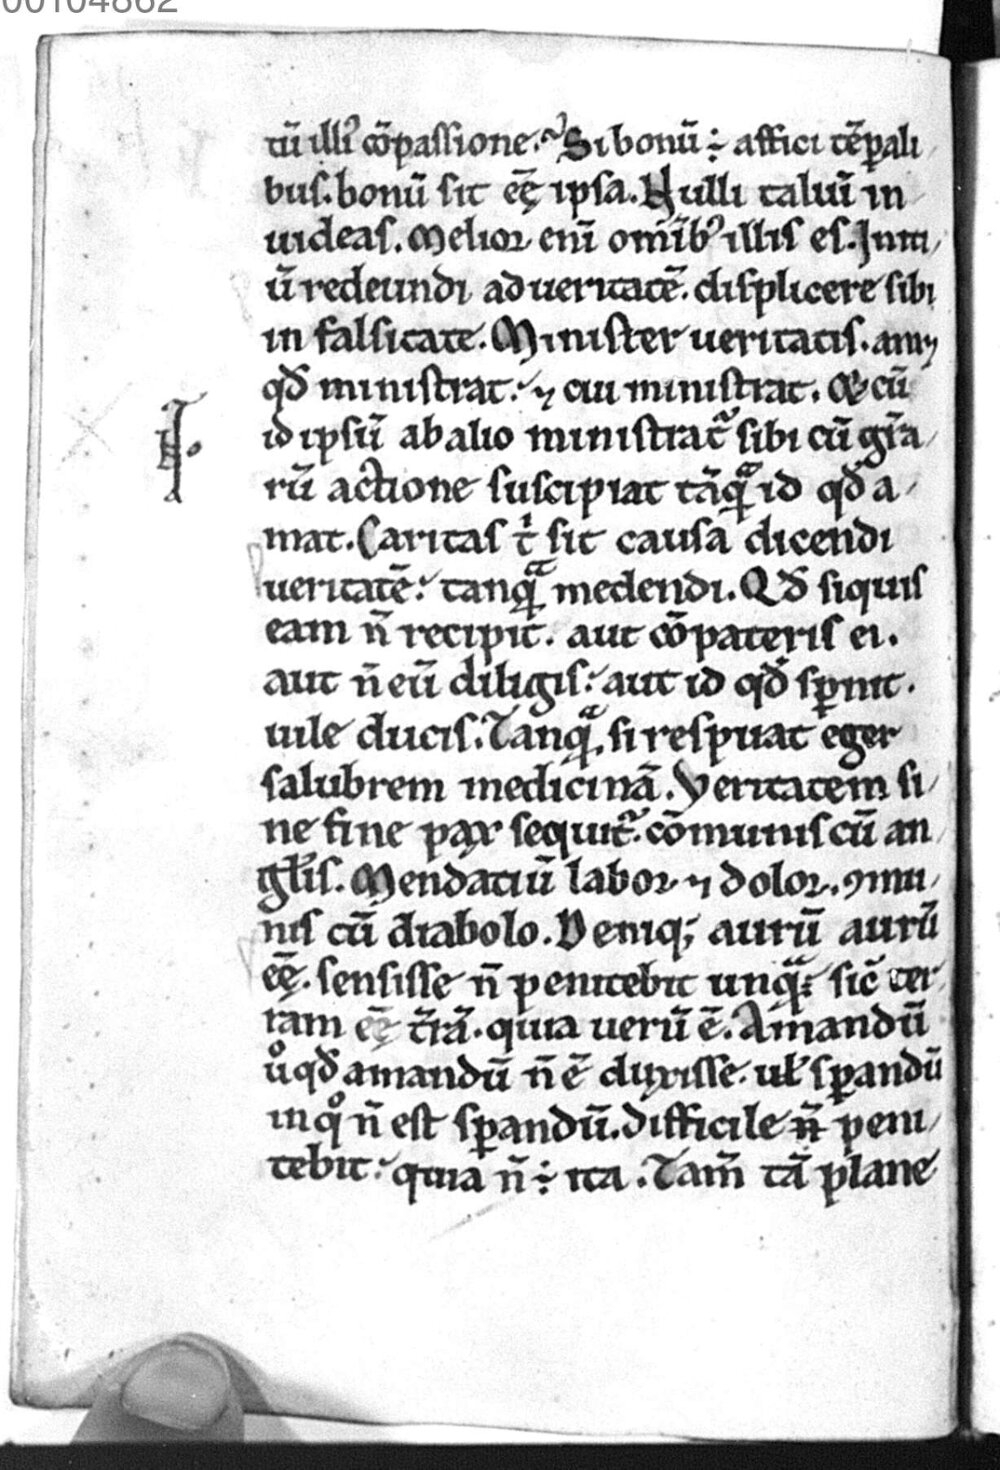 00104862
tū illi᾽ cōpassione. Si bonū ÷ affici tēꝑali
bus. bonū sit eē ipsa. Nulli taliū in
uideas. Melior eni᷎ omīb᾽ illis es. Initi
ū redeundi ad ueritatē. displicere sibi
in falsitate. Minister ueritatis. am&
qđ ministrat. ⁊ cui ministrat. & cū
id ipsū ab alio ministrat᷑ sibi cū gr̄a
rū actione suscipiat tāqͣ id qđ a
mat. Caritas t̄ sit causa dicendi
ueritatē. tanqͣ medendi. Qđ siquis
eam n̄ recipit. aut cōpateris ei.
aut n̄ eū diligis. aut id qđ sꝑnit.
uile ducis. Tanqͣ si respuat eger
salubrem medicinā. Veritatem si
ne fine pax sequit᷑. cōmunis cū an
gl̄is. Mendaciū labor ⁊ dolor. ꝯmu
nis cū diabolo. Deniq; aurū aurū
eē. sensisse n̄ penitebit unqͣ. sic᷑ ter
ram eē t̄rā. quia uerū ē. Amandū
uͦ qđ amandū n̄ ē duxisse. uł sꝑandū
in qͦ n̄ est sꝑandū. difficile n̄ peni
tebit. quia n̄ ÷ ita. Tam̄ tā plane